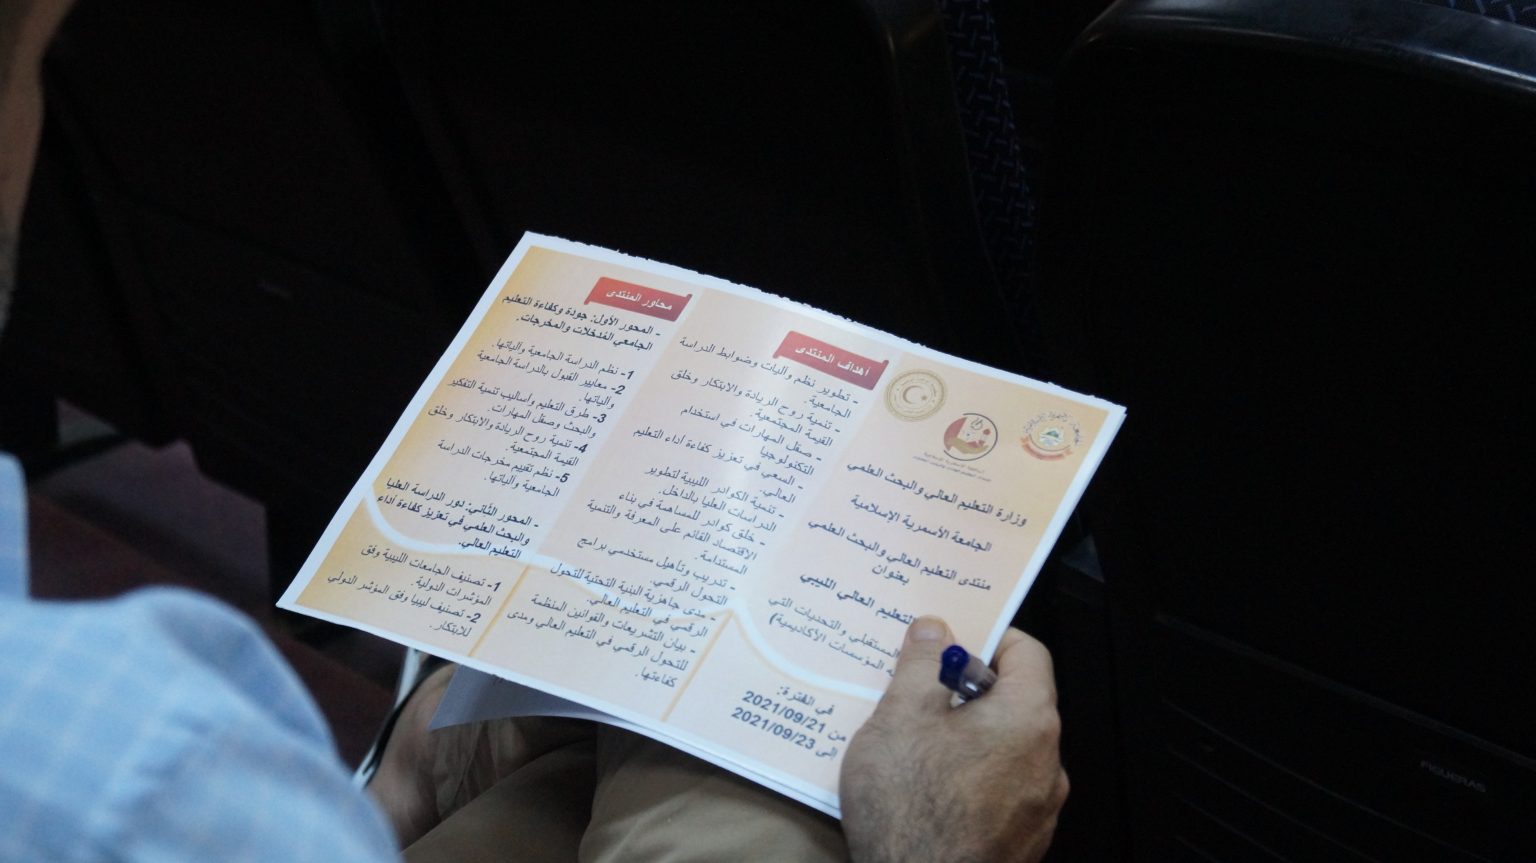 وزارة التعليم العالي والبحث العلمي
الجامعة الأسمرية الإسلامية
منتدى التعليم العالي والبحث العلمي
بعنوان
التعليم العالي الليبي
المستقبلي والتحديات التي
المؤسسات الأكاديمية)
في الفترة:
من 2021/09/21
إلى 2021/09/23
أهداف المنتدى
- تطوير نظم وآليات وضوابط الدراسة
الجامعية.
- تنمية روح الريادة والابتكار وخلق
القيمة المجتمعية.
- صقل المهارات في استخدام
التكنولوجيا
- السعي في تعزيز كفاءة أداء التعليم
العالي.
- تنمية الكوادر الليبية لتطوير
الدراسات العليا بالداخل.
- خلق كوادر للمساهمة في بناء
الاقتصاد القائم على المعرفة والتنمية
المستدامة.
- تدريب وتأهيل مستخدمي برامج
التحول الرقمي.
- مدى جاهزية البنية التحتية للتحول
الرقمي في التعليم العالي.
- بيان التشريعات والقوانين المنظمة
للتحول الرقمي في التعليم العالي ومدى
كفاءتها.
محاور المنتدى
- المحور الأول: جودة وكفاءة التعليم
الجامعي المدخلات والمخرجات.
1- نظم الدراسة الجامعية وآلياتها.
2- معايير القبول بالدراسة الجامعية
وآلياتها.
3- طرق التعليم وأساليب تنمية التفكير
والبحث وصقل المهارات.
4- تنمية روح الريادة والابتكار وخلق
القيمة المجتمعية.
5- نظم تقييم مخرجات الدراسة
الجامعية وآلياتها.
- المحور الثاني: دور الدراسة العليا
والبحث العلمي في تعزيز كفاءة أداء
التعليم العالي.
1- تصنيف الجامعات الليبية وفق
المؤشرات الدولية.
2- تصنيف ليبيا وفق المؤشر الدولي
للابتكار.
FIGUERAS